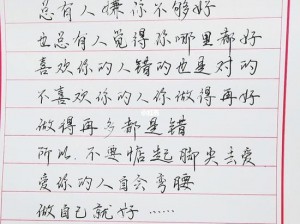 总有人嫌你不够好
也总有人觉得你哪里都好
喜欢你的人错的也是对的
不喜欢你的人你做得再好
做得再多都是错
所以.不要惦起脚尖去爱
爱你的人自会弯腰
做自己就好……